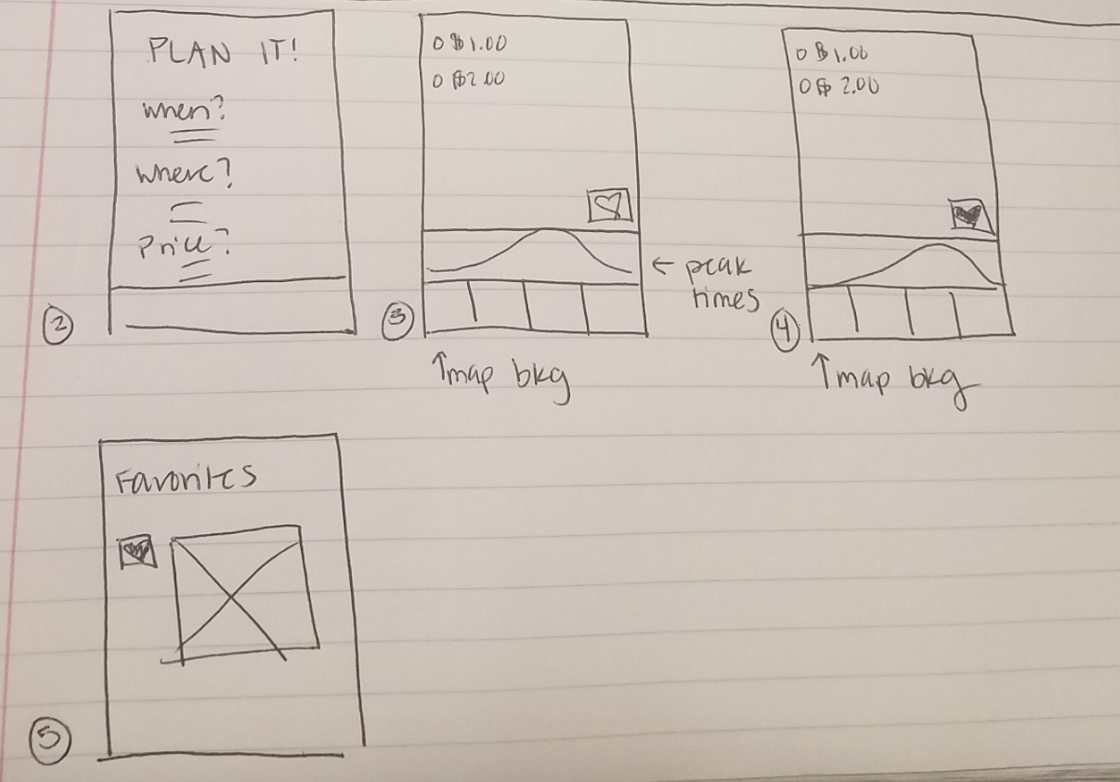 PLAN IT!
when?
where?
Price?
2
O $1.00
O $2.00
← peak
times
3
↑map bkg
O $1.00
O $ 2.00
4
↑map bkg
Favorites
5